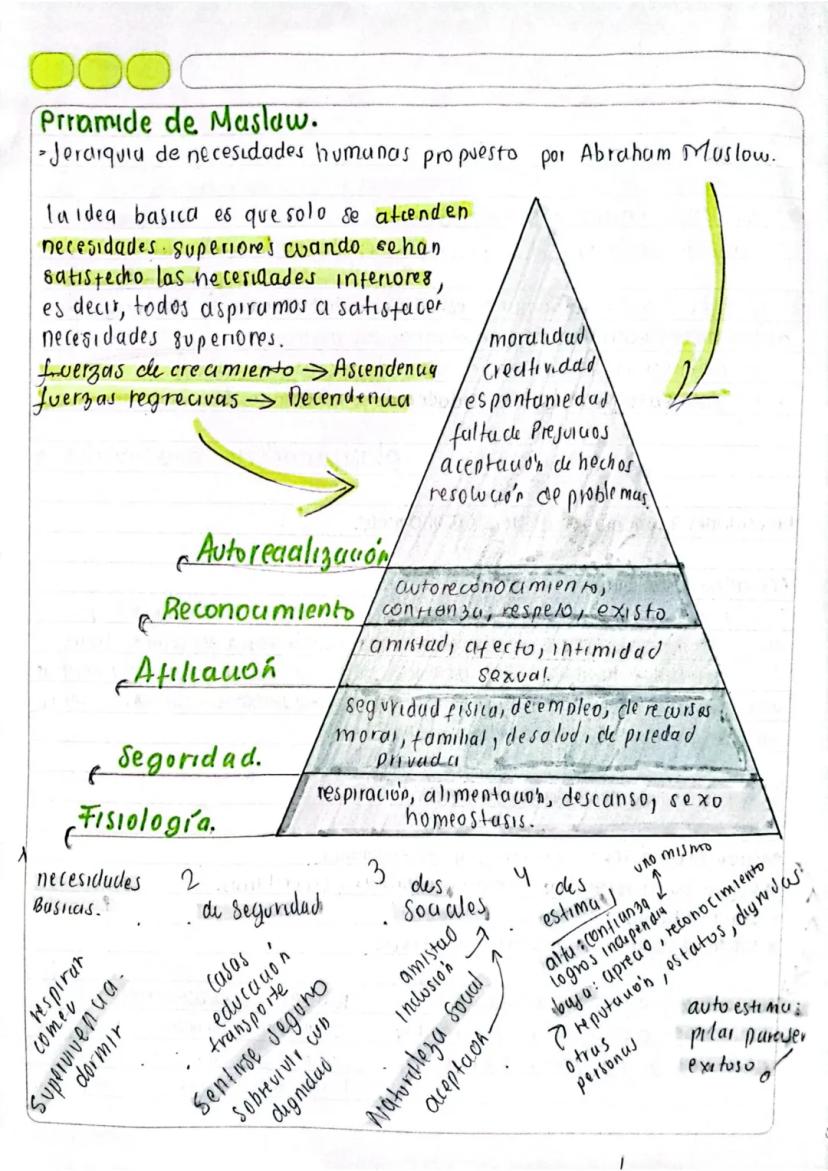 Pirramide de Maslaw.
-Jerarquia de necesidades humanas propuesto por Abraham Maslow.
la idea basica es que solo se atienden
necesidades superiores cuando se han
satisfecho las necesidades inferiores,
es decir, todos aspiramos a satisfacer
necesidades superiores.
fuerzas de crecimiento → Ascendencia
fuerzas regrecivas → Decendencia
moralidad
creatividad
espontaniedad
falta de Prejuicios
aceptación de hechos
resolución de problemas
Autorealización
autoreconocimiento,
Reconocimiento
confianza, respeto, existo
amistad, afecto, intimidad
sexual.
Afiliación
seguridad fisica, de empleo, de recursos
moral, familial, de salud, de priedad
privada
Segoridad.
respiración, alimentacion, descanso, sexo
homeostasis.
Fisiología.
1
necesidades
Basicas.
respirar
comer
Supervivencia.
dormir
2
de seguridad
casas
educación
transporte
Sentirse seguro
sobrevivir con
dignidad
3
des.
Sociales
amistad
Inclusión
Naturaleza Social
aceptación
4
des
estima
uno mismo
alta: confianza
logros independia
baja: aprecio, reconocimiento
reputación, estatos, dignidas
otras
personas
auto estima:
pilar para ser
exitoso